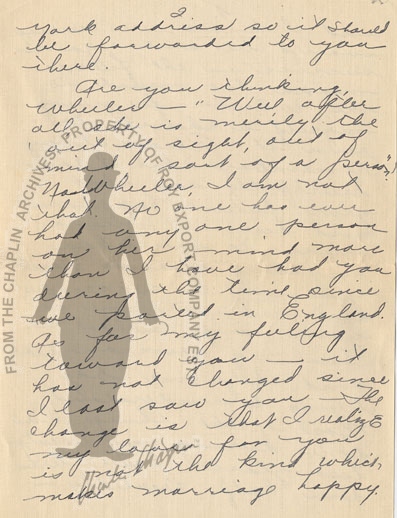 2
York address so it should
be forwarded to you
there.
Are you thinking,
Wheeler — "Well after
all she is merely the
"out of sight, out of
mind" sort of a person"?
No Wheeler, I am not
that. No one has ever
had any one person
on her mind more
than I have had you
during the time since
we parted in England.
As for my feeling
toward you — it
has not changed since
I last saw you. The
change is that I realize
my love for you
is not the kind which
makes marriage happy.
FROM THE CHAPLIN ARCHIVES, PROPERTY OF ROY EXPORT COMPANY EST
Charlie Chaplin